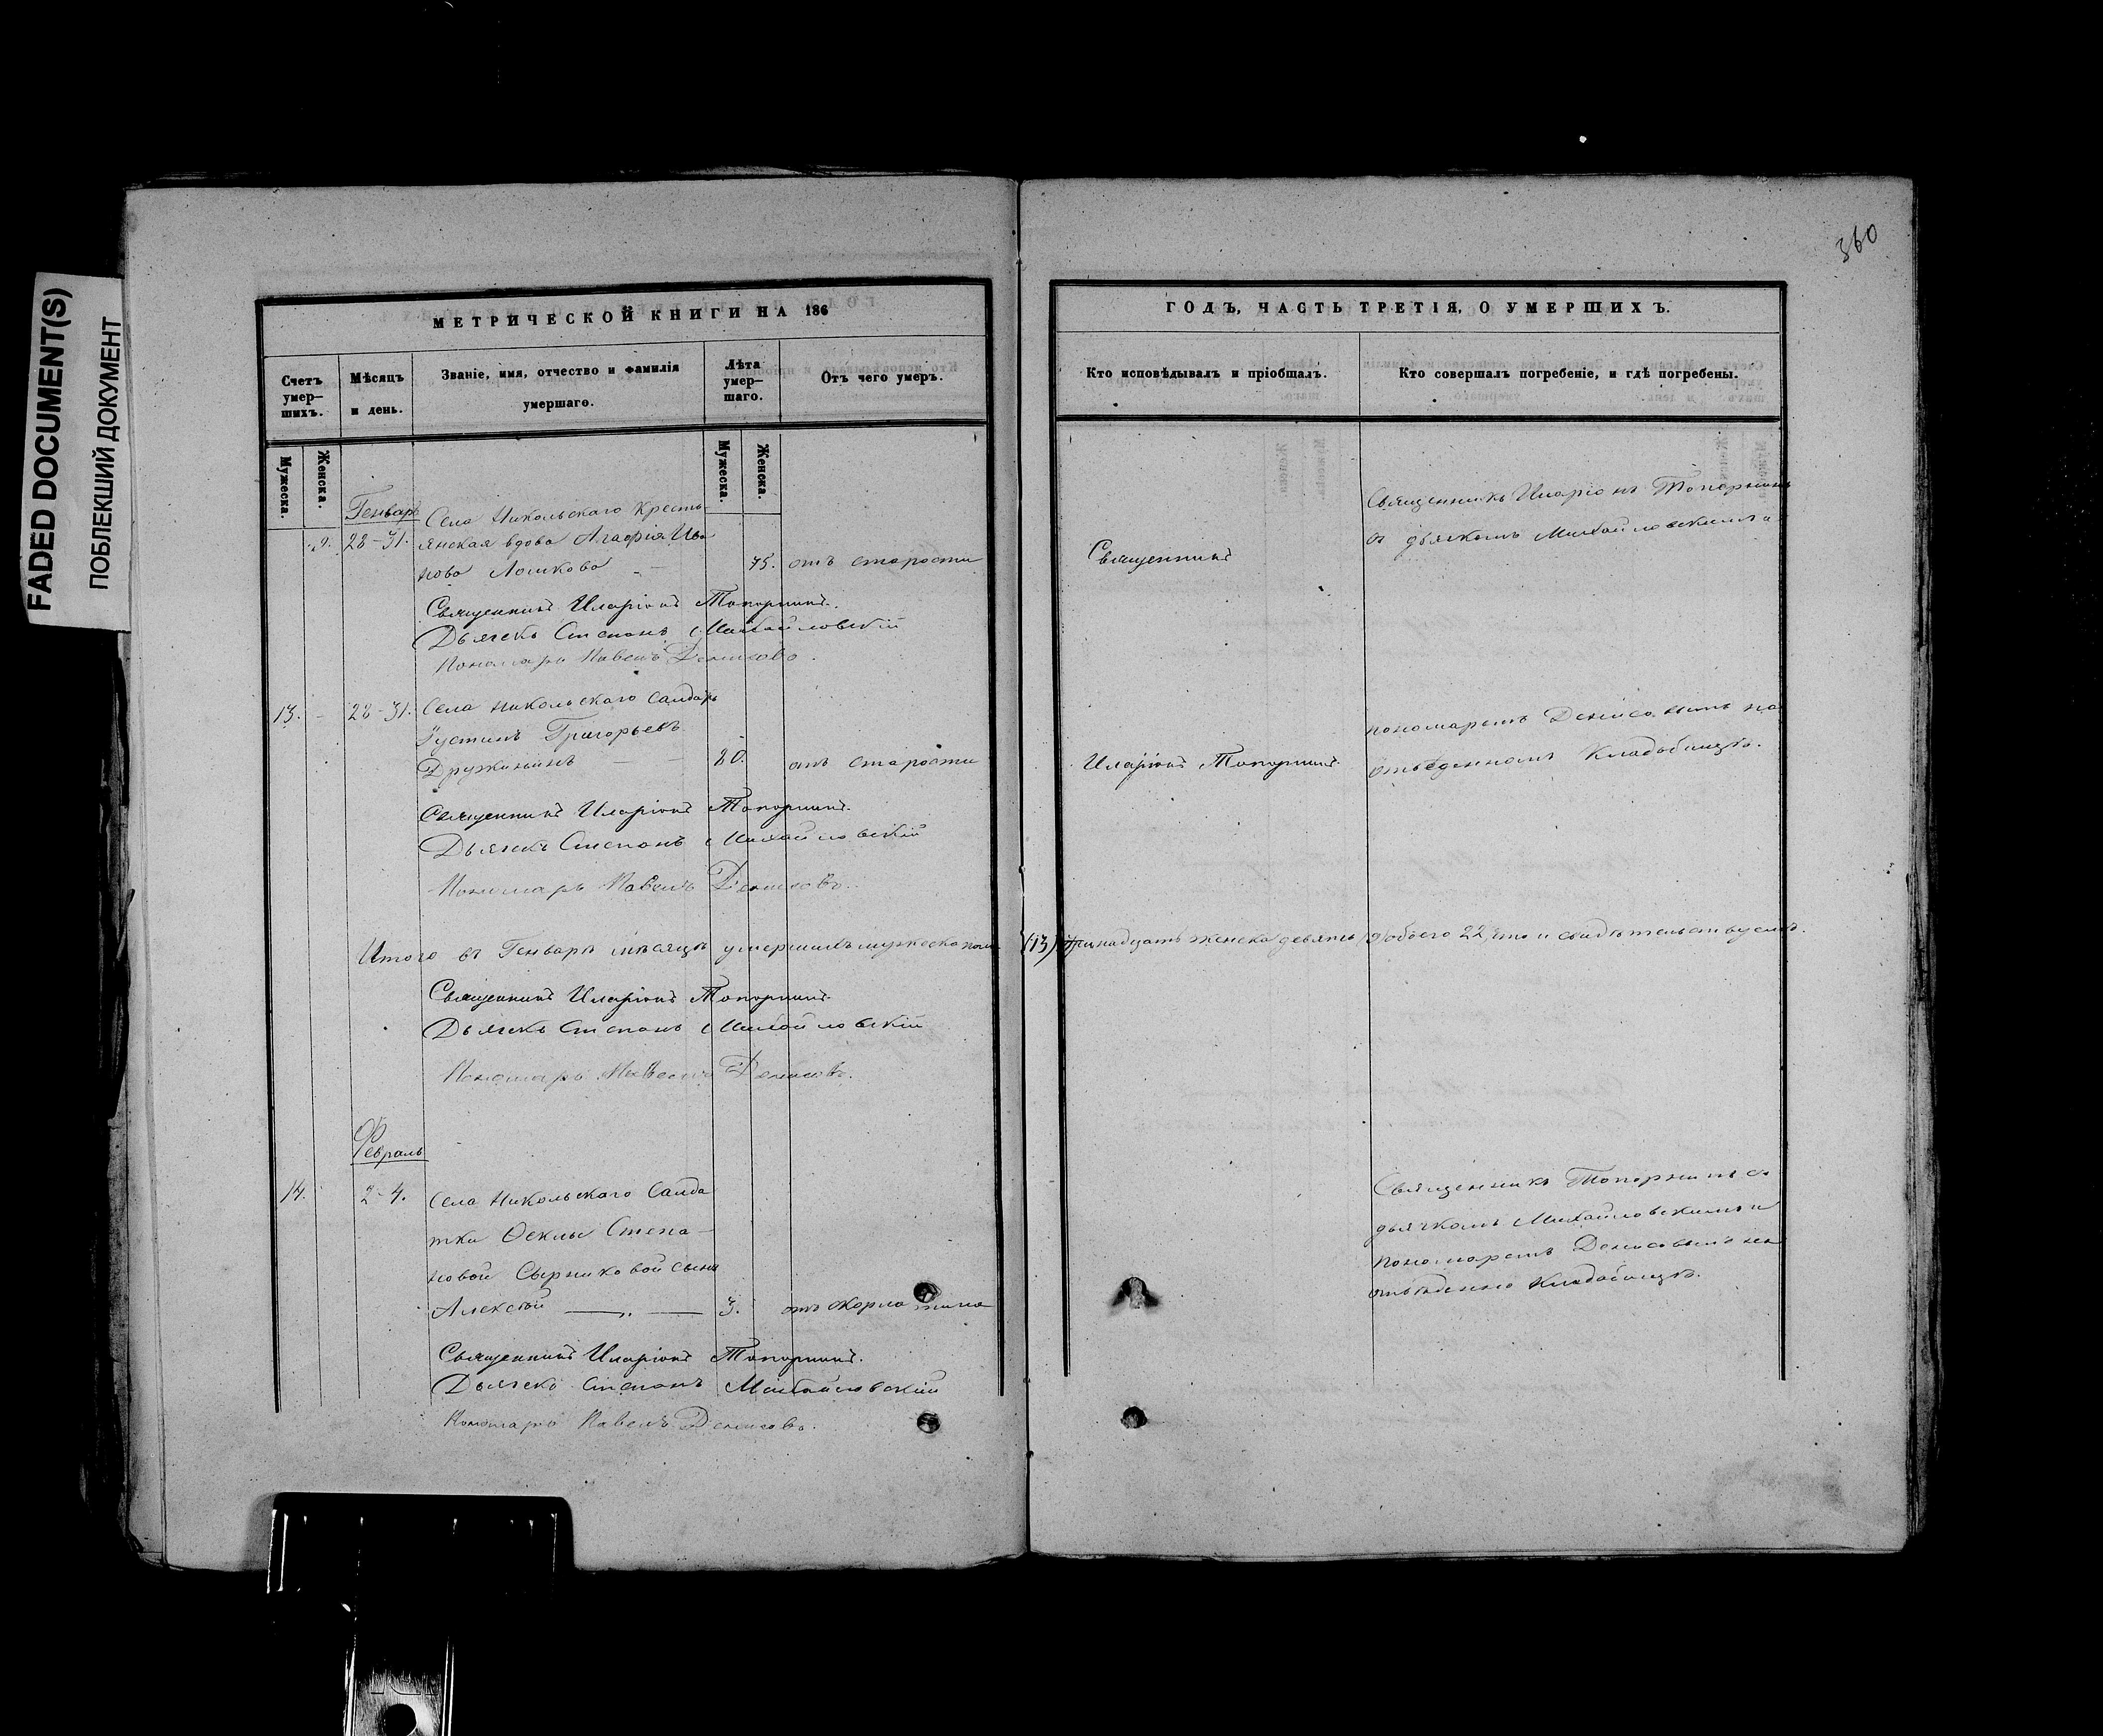 FADED DOCUMENT(S)
ПОБЛЕКШИЙ ДОКУМЕНТ
360
МЕТРИЧЕСКОЙ КНИГИ НА 186
ГОДЪ, ЧАСТЬ ТРЕТІЯ, О УМЕРШИХЪ.
Счетъ умер-шихъ.
Мѣсяцъ и день.
Званіе, имя, отчество и фамилія умершаго.
Лѣта умер-шаго.
Отъ чего умеръ.
Кто исповѣдывалъ и пріобщалъ.
Кто совершалъ погребеніе, и гдѣ погребены.
Мужеска.
Женска.
Мужеска.
Женска.
Генварь
Села Никольскаго Кресть
9. 28-31. янская вдова Агафія Ива
нова Ломкова 75. отъ старости
Священникъ Иларіонъ Топорнинъ.
Дьячекъ Степанъ Михайловскій
Пономарь Павелъ Денисовъ.
13. - 28-31. Села Никольскаго Салдатъ
Густинъ Григорьевъ
Дружининъ 80. отъ старости
Священникъ Иларіонъ Топорнинъ.
Дьячекъ Степанъ Михайловскій
Пономарь Павелъ Денисовъ.
Священникъ
Иларіонъ Топорнинъ.
Священникъ Иларіонъ Топорнинъ
съ дьячкомъ Михайловскимъ и
пономаремъ Денисовымъ на
отведенномъ Кладбищѣ.
Итого въ Генварѣ мѣсяцѣ умершихъ мужеска пола (13) тринадцать женска девять (9) обоего 22, что и свидѣтельствуемъ.
Священникъ Иларіонъ Топорнинъ.
Дьячекъ Степанъ Михайловскій
Пономарь Павелъ Денисовъ.
Февраль
14. 2-4. Села Никольскаго Салда
тки Ѳеклы Степа-
новой Сырниковой сынъ
Алексѣй 3. отъ
Священникъ Иларіонъ Топорнинъ.
Дьячекъ Степанъ Михайловскій
Пономарь Павелъ Денисовъ.
Священникъ Топорнинъ съ
дьячкомъ Михайловскимъ и
пономаремъ Денисовымъ на
Кладбищѣ.